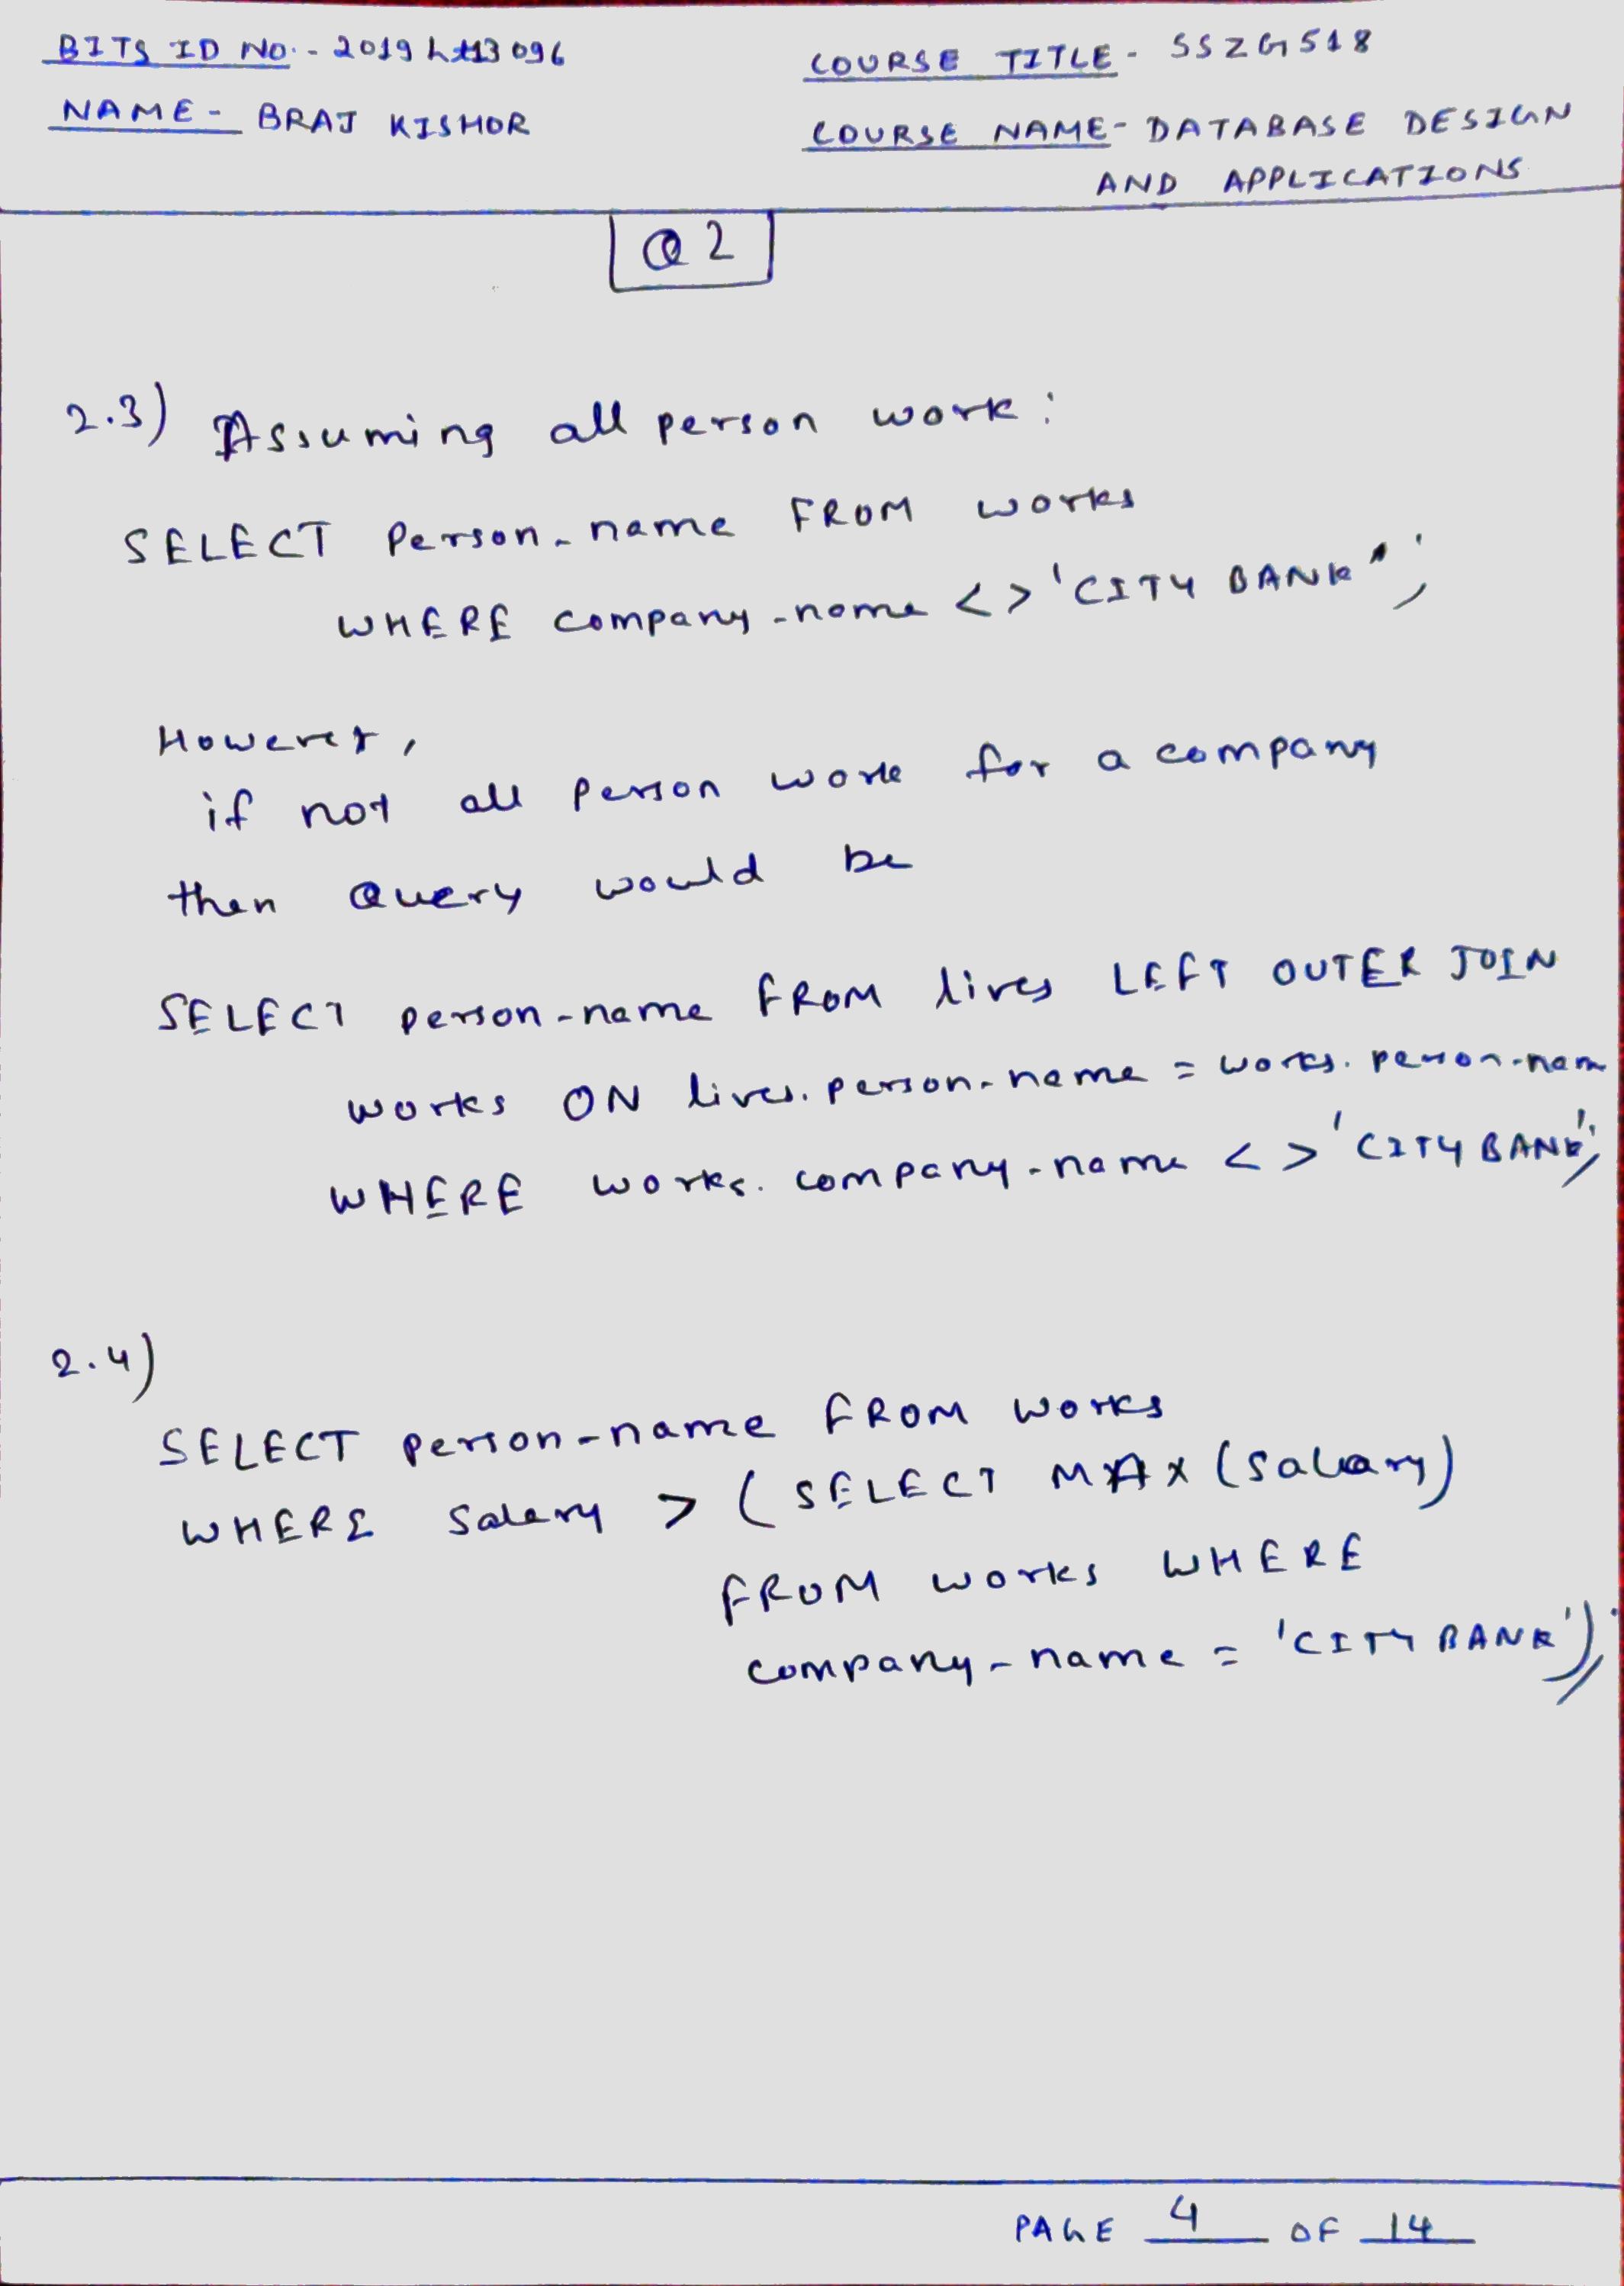 BITS ID NO. - 2019ht13096
COURSE TITLE - SSZG518
NAME - BRAJ KISHOR
COURSE NAME - DATABASE DESIGN
AND APPLICATIONS
Q2
2.3) Assuming all person work:
SELECT Person_name FROM works
WHERE company_name <> 'CITY BANK';
However,
if not all Person work for a company
then Query would be
SELECT person_name FROM lives LEFT OUTER JOIN
works ON lives.person_name = works.person_nam
WHERE works.company_name <> 'CITY BANK';
2.4)
SELECT person_name FROM works
WHERE salary > (SELECT MAX (salary)
FROM works WHERE
company_name = 'CITY BANK');
PAGE 4 OF 14